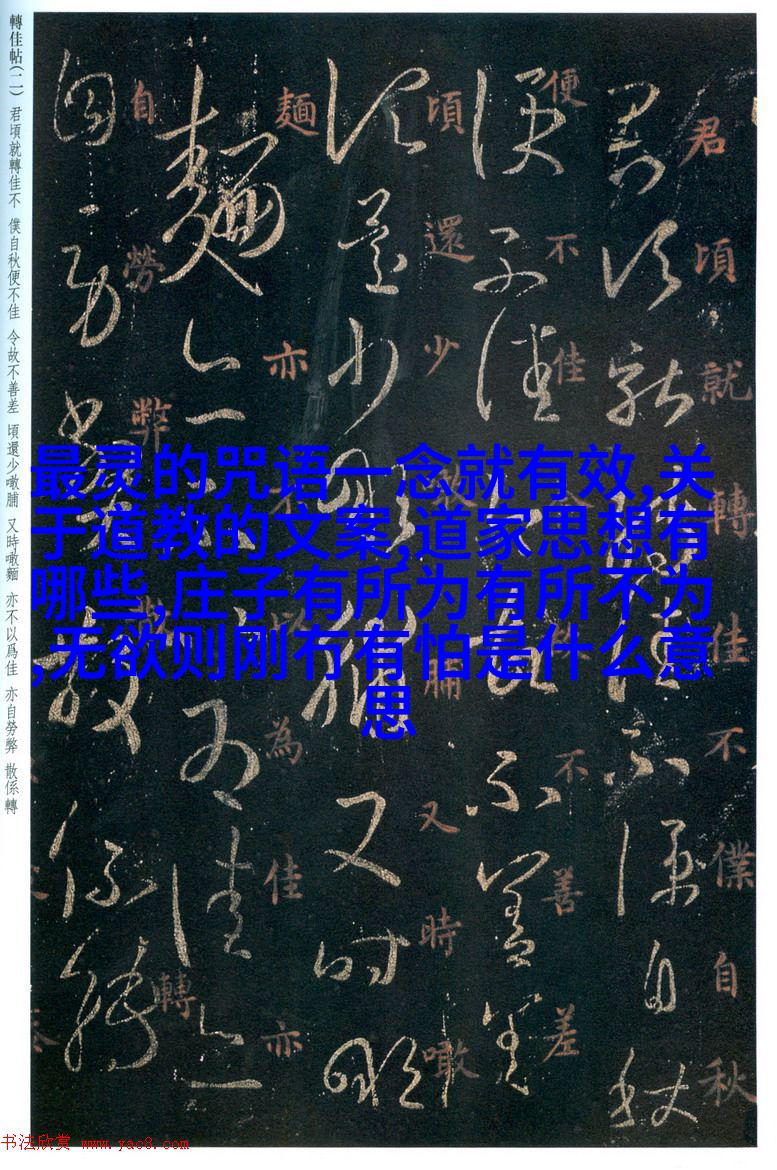 轉佳帖(二) 君頃就轉佳不 僕自秋便不佳 令故不善差 頃還少噉脯 又時噉麵 亦不以爲佳 亦自勞弊 散係轉
君頃就轉佳不僕自秋
便不佳今故不善差
頃還少噉脯又時噉
麵亦不以為佳亦
自勞弊散係轉
最灵的咒语一念就有效,关
于道教的文案,道家思想有
哪些,庄子有所为有所不为
,无欲则刚冇有怕是什么意
思
书法欣赏 www.yac8.com